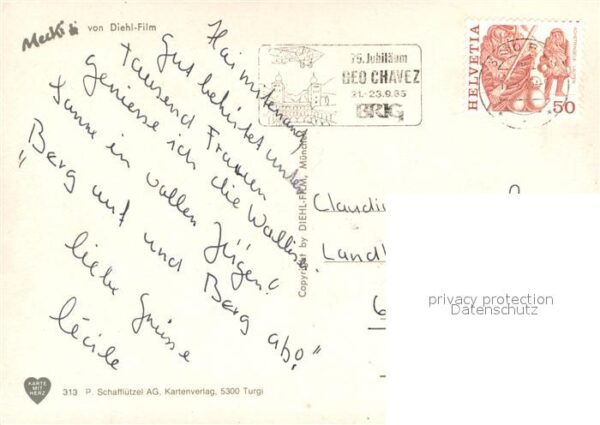 Mecki von Diehl-Film
75. Jubiläum
GEO CHAVEZ
21.-23.9.85
BRIG
HELVETIA
50
Hoi mitenand
Gut behütet unter
tausend Frauen
geniesse ich die Walliser
Sonne in vollen Zügen!
"Berg auf und Berg abo"
liebe Grüsse
Cécile
Copyright by DIEHL-FILM, München
Claudi
Landl
6
privacy protection
Datenschutz
KARTE
MIT
HERZ
313 P. Schafflützel AG, Kartenverlag, 5300 Turgi